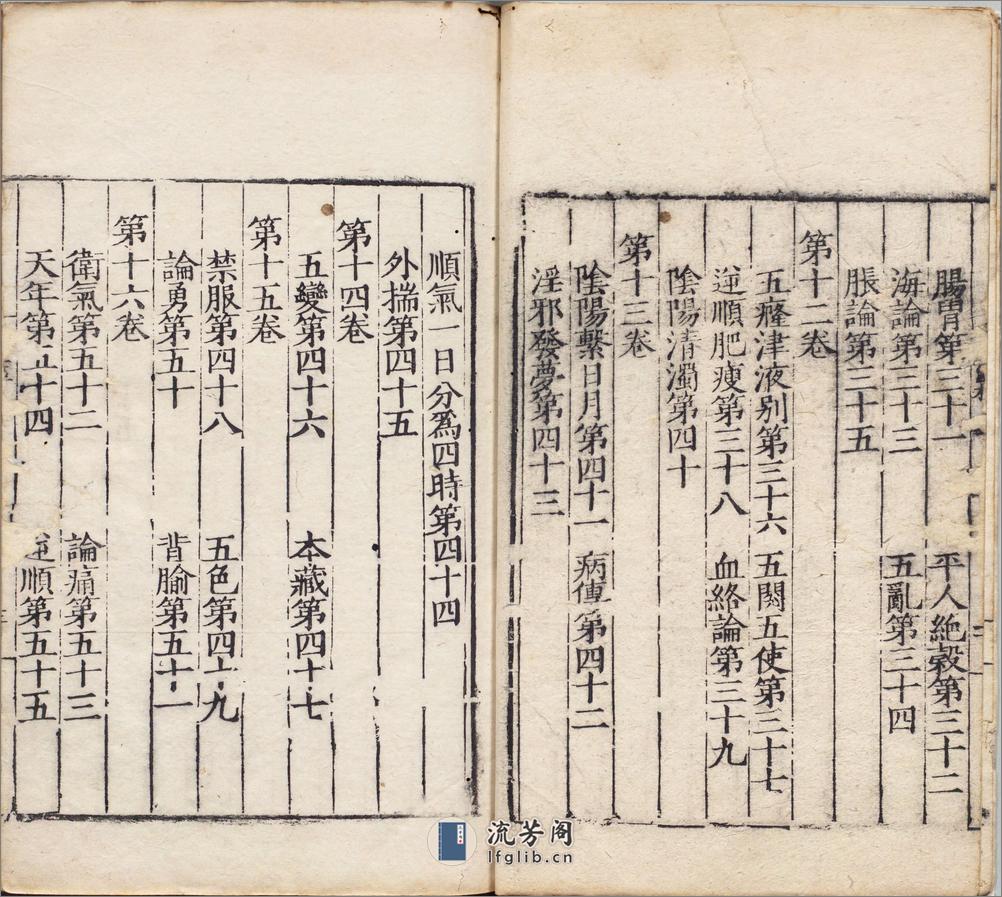 腸胃第三十一　平人絶穀第三十二
海論第三十三　五亂第三十四
脹論第三十五
第十二卷
五癃津液别第三十六　五閱五使第三十七
逆順肥瘦第三十八　血絡論第三十九
陰陽清濁第四十
第十三卷
陰陽繫日月第四十一　病傳第四十二
淫邪發夢第四十三
順氣一日分爲四時第四十四
外揣第四十五
第十四卷
五變第四十六　本藏第四十七
第十五卷
禁服第四十八　五色第四十九
論勇第五十　背腧第五十一
第十六卷
衛氣第五十二　論痛第五十三
天年第五十四　逆順第五十五
流芳阁
lfglib.cn